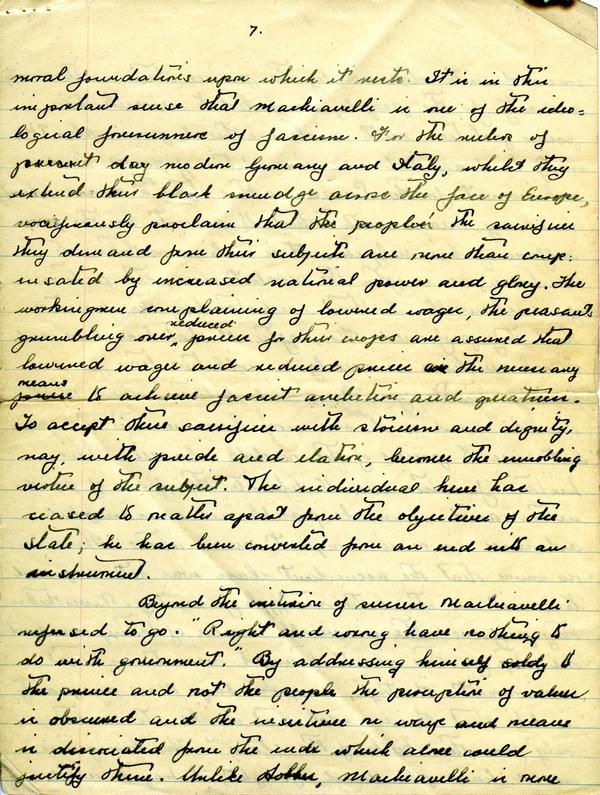 7.
moral foundations upon which it rests. It is in this
important sense that Machiavelli is one of the ideo=
logical forerunners of fascism. For the rulers of
present day modern Germany and Italy, whilst they
extend their black smudge across the face of Europe,
vociferously proclaim that the peoples' the sacrifice
they demand from their subjects are more than comp:
ensated by increased national power and glory. The
workingmen complaining of lowered wages, the peasants
grumbling over reduced prices for their crops are assured that
lowered wages and reduced prices are the necessary
means to achieve fascist ambition and greatness.
To accept these sacrifices with stoicism and dignity,
nay, with pride and elation, becomes the ennobling
virtue of the subject. The individual here has
ceased to matter apart from the objectives of the
state; he has been converted from an end into an
instrument.
Beyond the criterion of success Machiavelli
refused to go. "Right and wrong have nothing to
do with government." By addressing himself solely to
the prince and not the people the perception of values
is obscured and the insistence on ways and means
is dissociated from the ends which alone could
justify them. Unlike Hobbes, Machiavelli is more